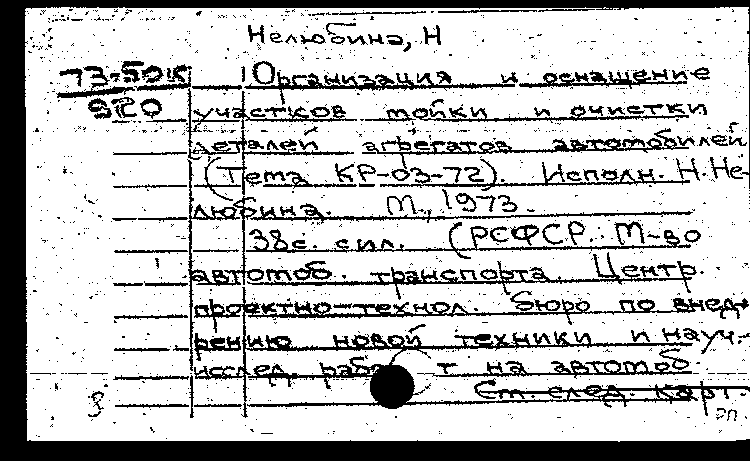 Нелюбина, Н
73-50к Организация и оснащение
920 участков мойки и очистки
деталей агрегатов автомобилей
(Тема КР-03-72). Исполн. Н.Не-
любина. М., 1973.
38с. с ил. (РСФСР. М-во
автомоб. транспорта. Центр.
проектно-технол. бюро по внед-
рению новой техники и науч.-
исслед. работ на автомоб.
См. след. карт.